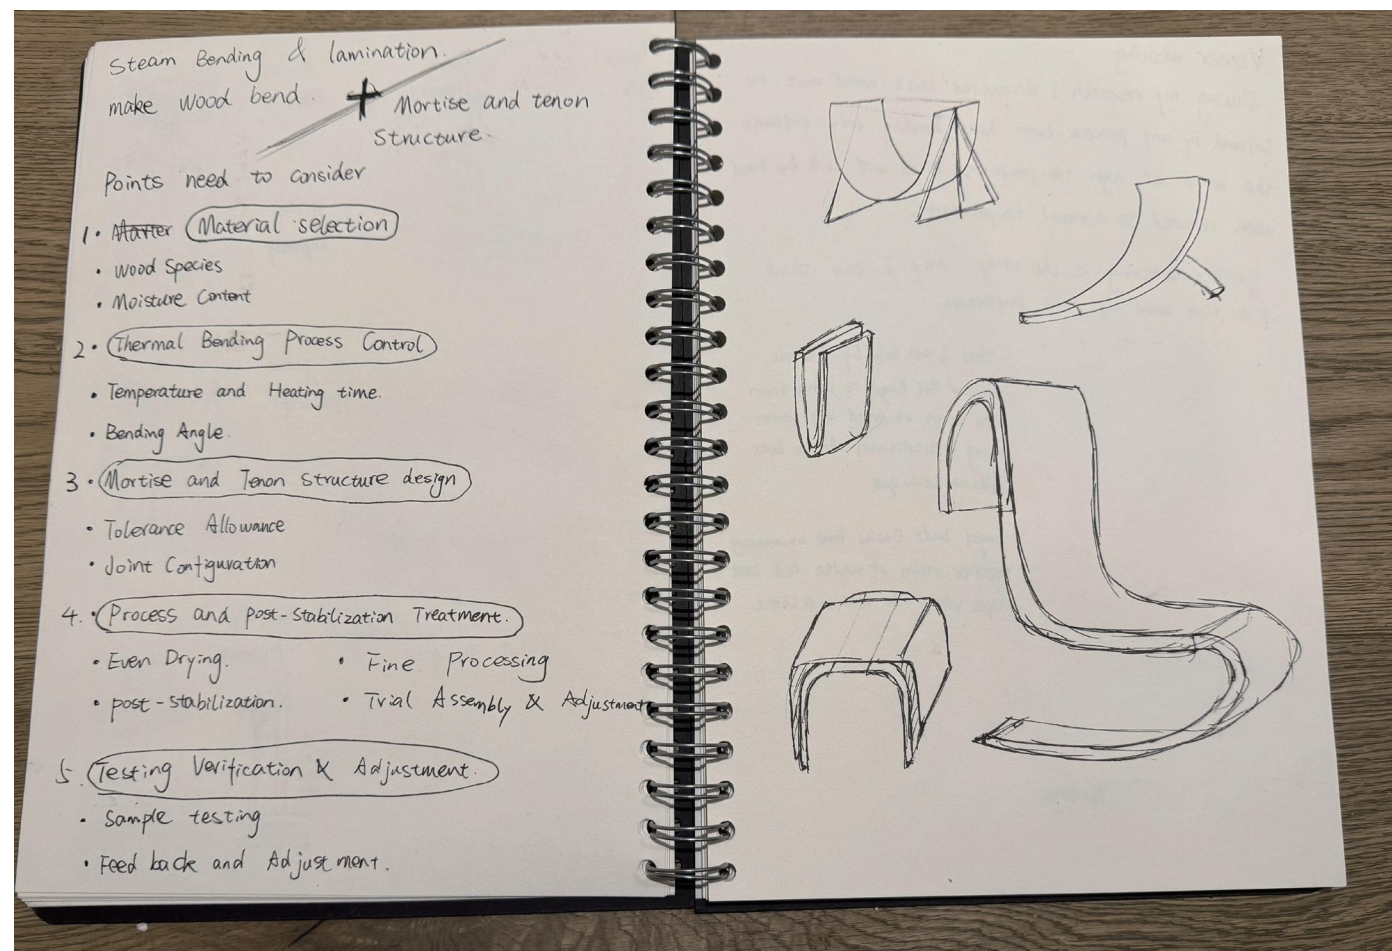 Steam Bending & lamination.
make wood bend.
+ Mortise and tenon
Structure.
Points need to consider
1. Matter Material selection
• Wood Species
• Moisture Content
2. Thermal Bending Process Control
• Temperature and Heating time.
• Bending Angle.
3. Mortise and Tenon Structure design
• Tolerance Allowance
• Joint Configuration
4. Process and post-stabilization Treatment.
• Even Drying.
• Fine Processing
• post-stabilization.
• Trial Assembly & Adjustment
5. Testing Verification & Adjustment.
• Sample testing
• Feed back and Adjustment.